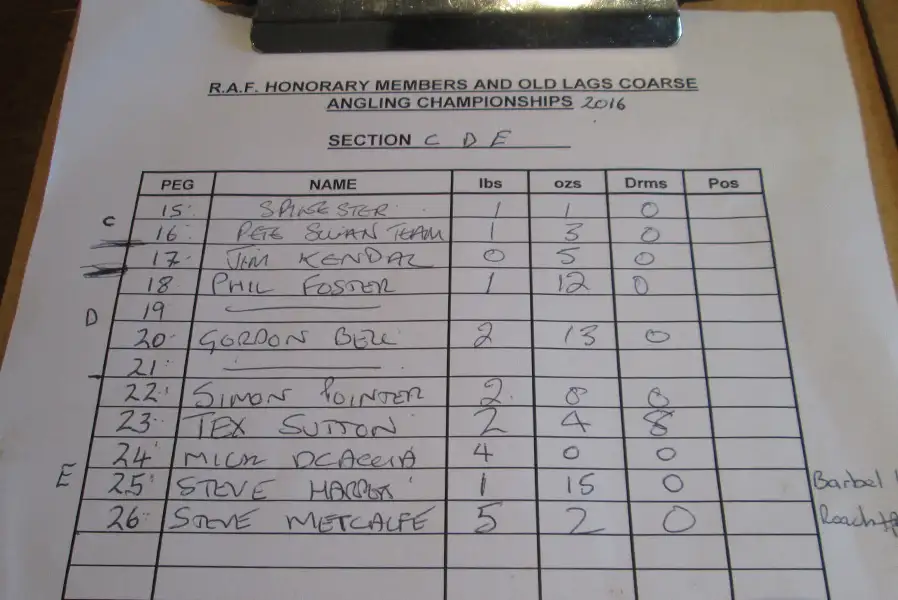 R.A.F. HONORARY MEMBERS AND OLD LAGS COARSE
ANGLING CHAMPIONSHIPS 2016
SECTION C D E
PEG NAME lbs ozs Drms Pos
C 15 1 1 0
16 PETE SWAN TEAM 1 3 0
17 JIM KENDAL 0 5 0
18 PHIL FOSTER 1 12 0
D 19
20 GORDON BELL 2 13 0
21
22 SIMON POINTER 2 8
23 TEX SUTTON 2 4 8
24 MICK 4 0 0
E 25 STEVE 1 15 0 Barbel
26 STEVE METCALFE 5 2 0 Roach